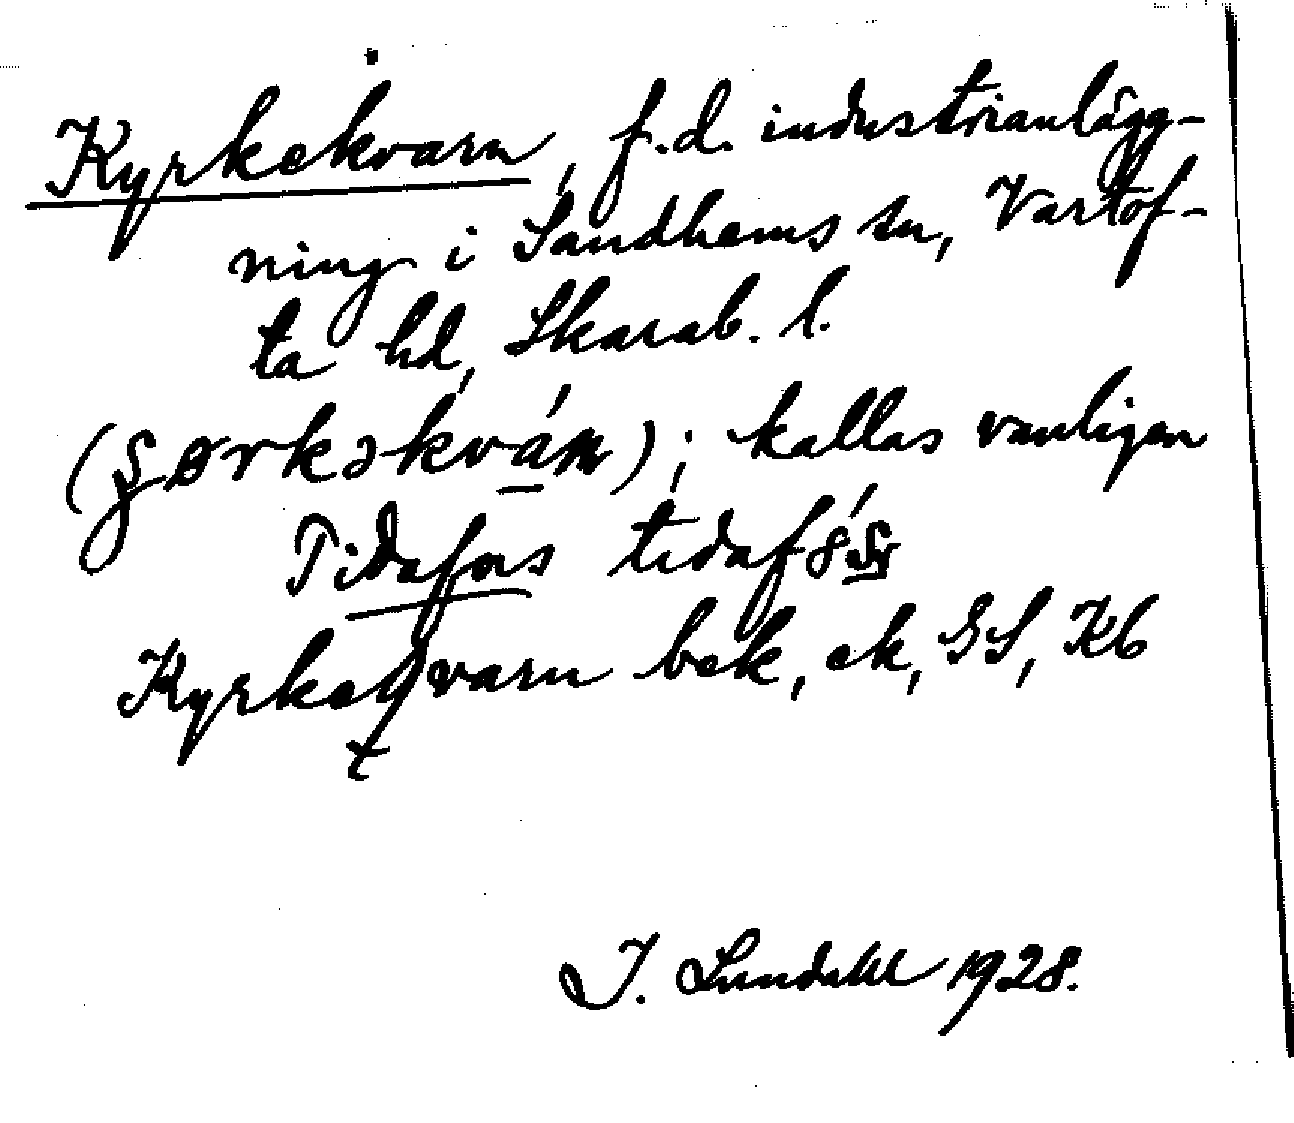 Kyrkekvarn, f.d. industrianlägg-
ning i Sandhems sn, Vartof-
ta hd, Skarab. l.
kallas vanligen
Tidafors
Kyrkeqvarn bek, ek, GS, Kb
J. Lundahl 1928.